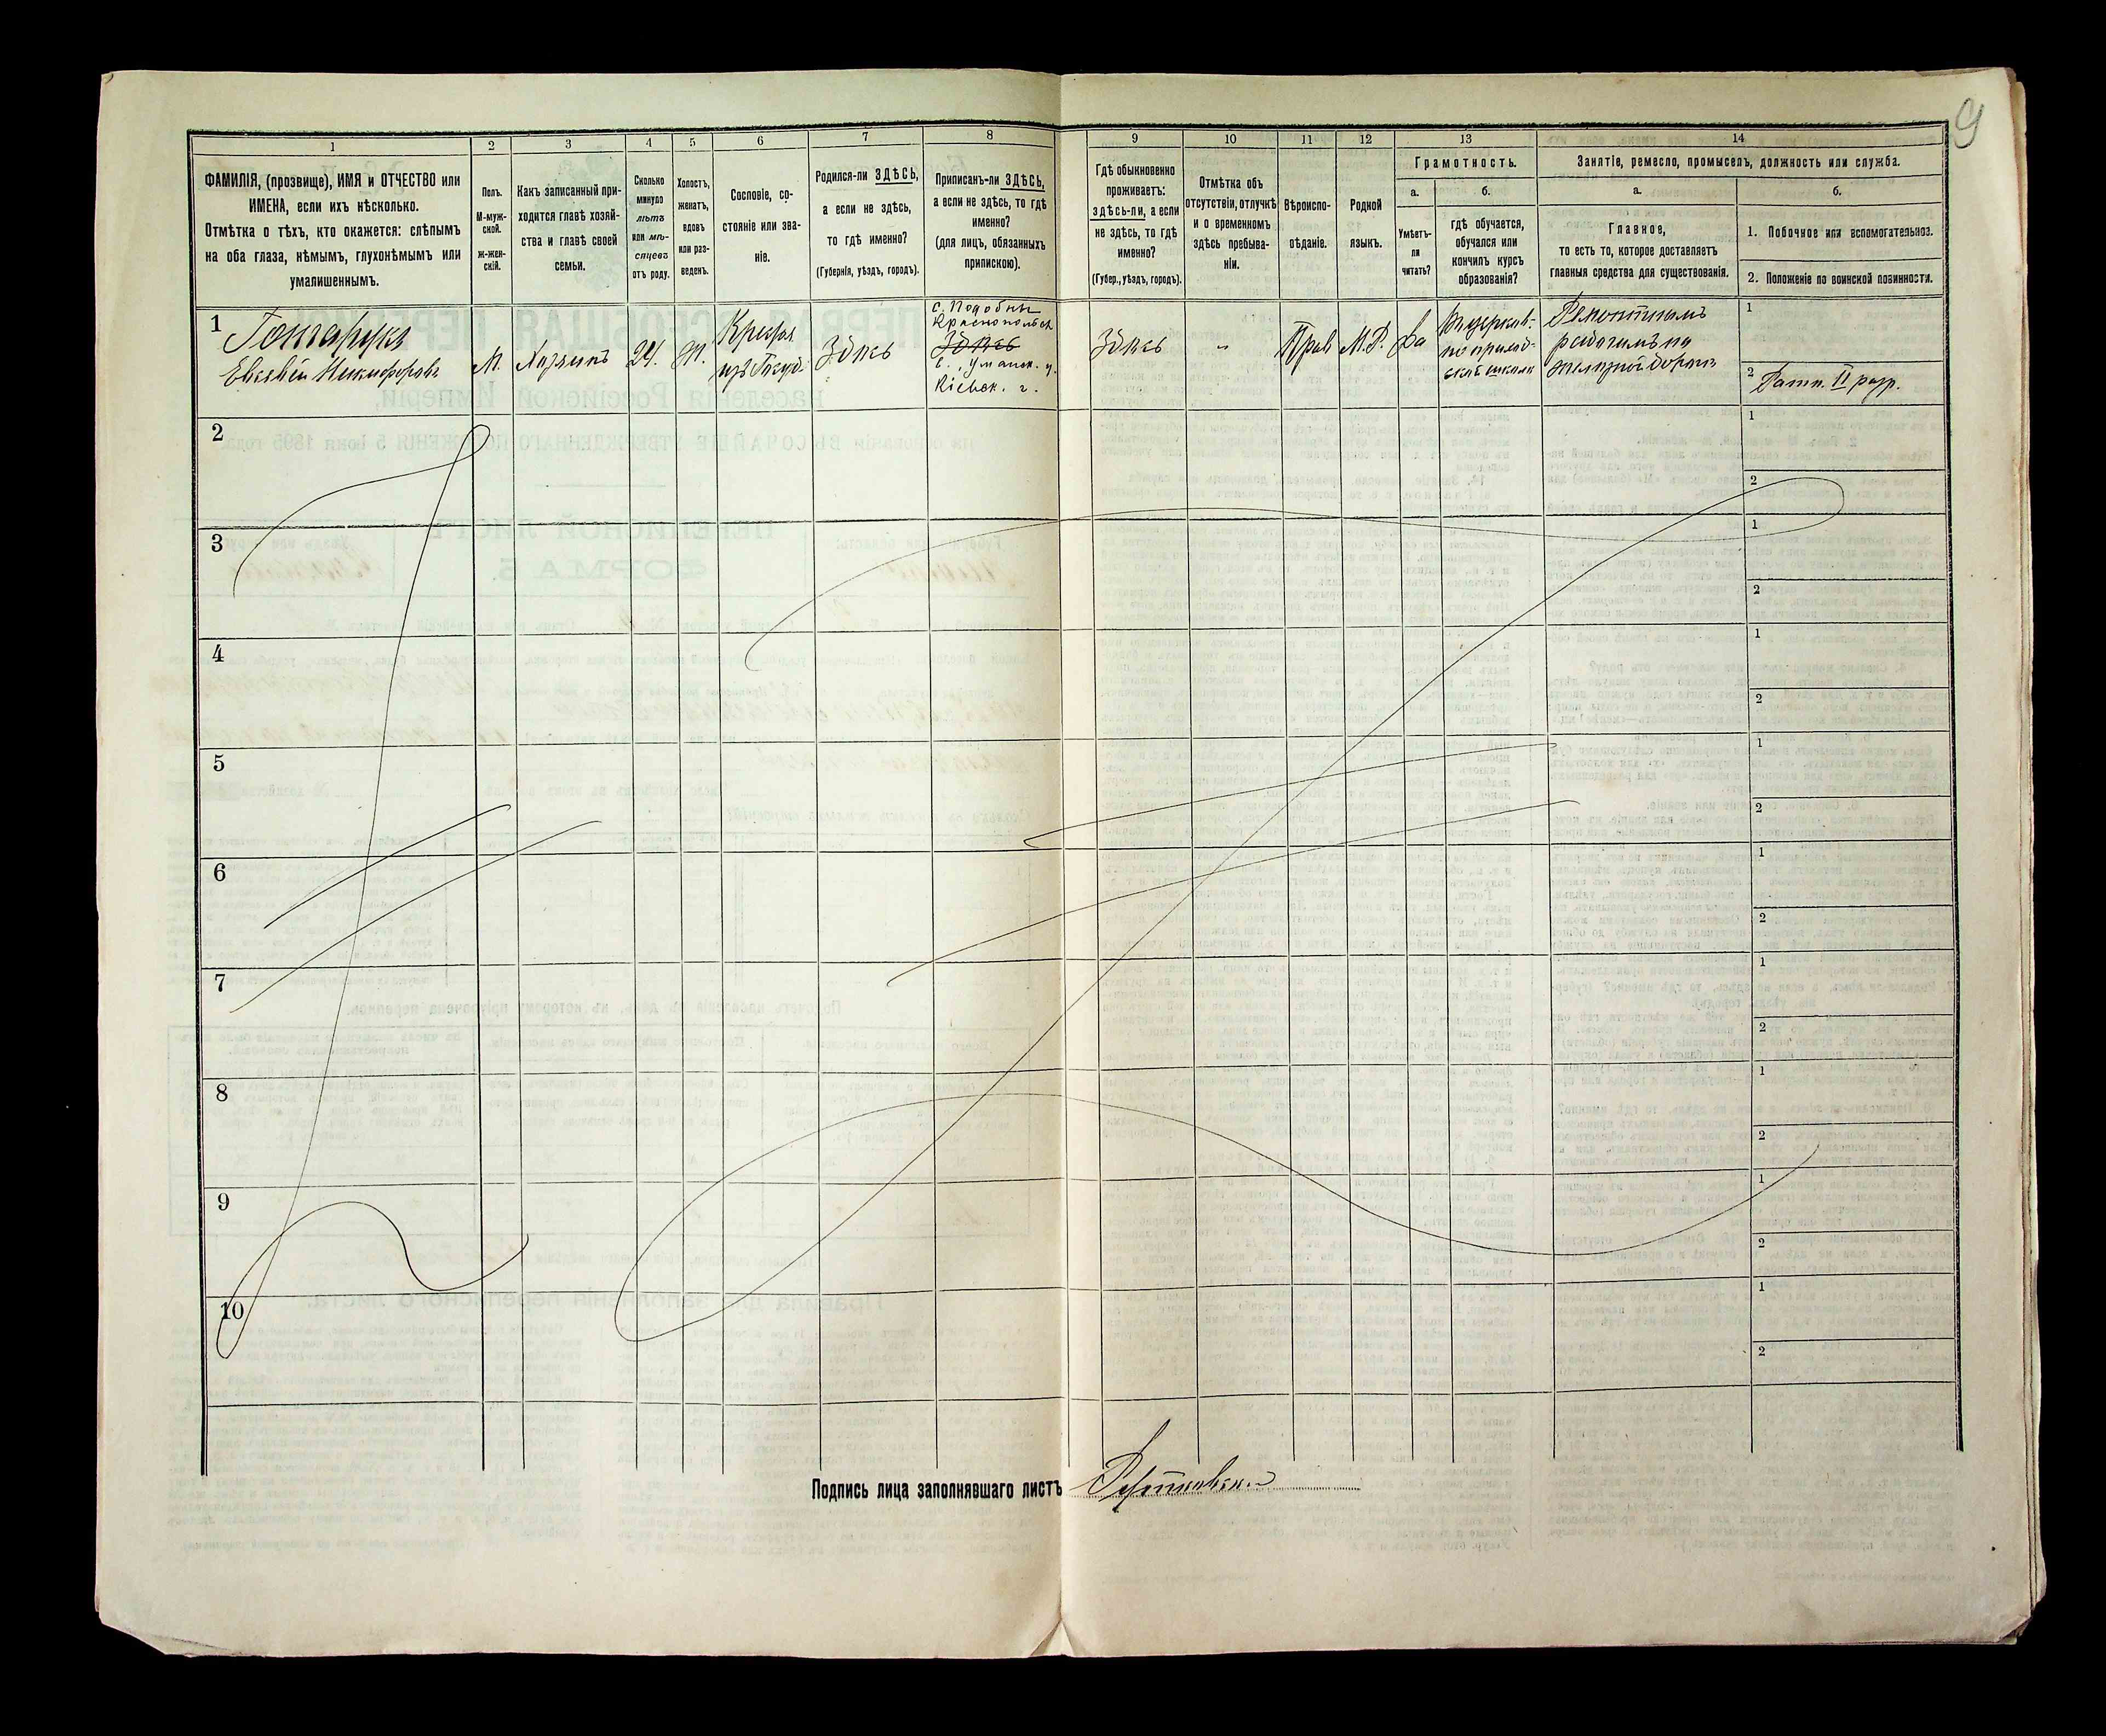 9
1
2
3
4
5
6
7
8
9
10
11
12
13
14
ФАМИЛІЯ, (прозвище), ИМЯ и ОТЧЕСТВО или
ИМЕНА, если ихъ нѣсколько.
Отмѣтка о тѣхъ, кто окажется: слѣпымъ
на оба глаза, нѣмымъ, глухонѣмымъ или
умалишеннымъ.
Полъ.
М-муж-
ской.
ж-жен-
скій.
Какъ записанный при-
ходится главѣ хозяй-
ства и главѣ своей
семьи.
Сколько
минуло
лѣтъ
или мѣ-
сяцевъ
отъ роду.
Холостъ,
женатъ,
вдовъ
или раз-
веденъ.
Сословіе, со-
стояніе или зва-
ніе.
Родился-ли ЗДѢСЬ,
а если не здѣсь,
то гдѣ именно?
(Губернія, уѣздъ, городъ).
Приписанъ-ли ЗДѢСЬ,
а если не здѣсь, то гдѣ
именно?
(для лицъ, обязанныхъ
припискою).
Гдѣ обыкновенно
проживаетъ:
здѣсь-ли, а если
не здѣсь, то гдѣ
именно?
(Губер., уѣздъ, городъ).
Отмѣтка объ
отсутствіи, отлучкѣ
и о временномъ
здѣсь пребыва-
ніи.
Вѣроиспо-
вѣданіе.
Родной
языкъ.
Грамотность.
а.
Умѣетъ-
ли
читать?
б.
гдѣ обучается,
обучался или
кончилъ курсъ
образованія?
Занятіе, ремесло, промыселъ, должность или служба.
а.
Главное,
то есть то, которое доставляетъ
главныя средства для существованія.
б.
1. Побочное или вспомогательное.
2. Положеніе по воинской повинности.
1
Гончарукъ
Евсевій Никифоровъ
М.
Хозяинъ
24.
Ж.
Здѣсь
с. Подобны
Краснопольск
Здѣсь
в., Уманск. у.
Кіевск. г.
Здѣсь
"
Прав
М.Р.
Да
Въ церков-
но приход-
ской школѣ
Ремонтнымъ
рабочимъ на
желѣзной дорогѣ
1
2
Ратн. II разр.
2
1
2
3
1
2
4
1
2
5
1
2
6
1
2
7
1
2
8
1
2
9
1
2
10
1
2
Подпись лица заполнявшаго листъ